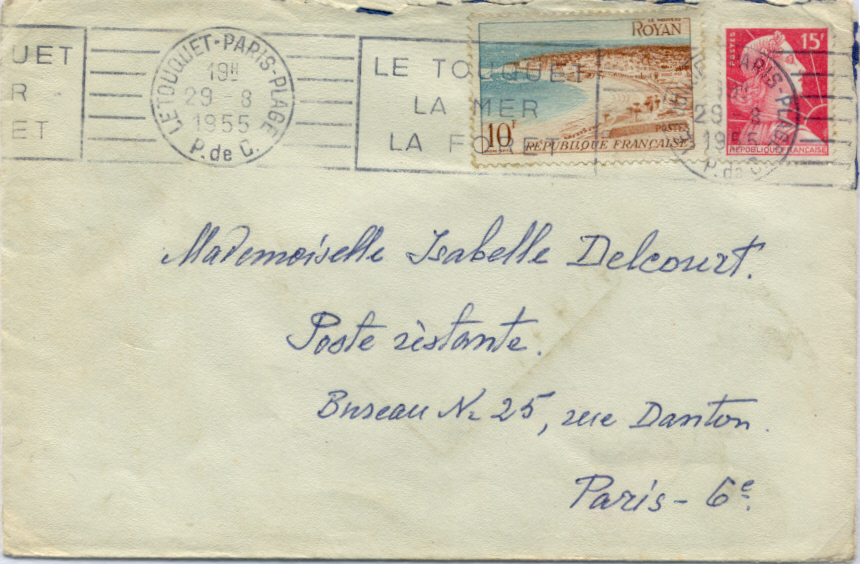 UET
R
ET
LE TOUQUET-PARIS-PLAGE
19H
29-8
1955
P. de C.
LE TOUQUET
LA MER
LA FORET
ROYAN
10F
POSTES
REPUBLIQUE FRANCAISE
POSTES
15F
REPUBLIQUE FRANCAISE
PARIS-PLAGE
29-8
1955
P. de C.
Mademoiselle Isabelle Delcourt.
Poste réstante.
Bureau No 25, rue Danton.
Paris - 6e.